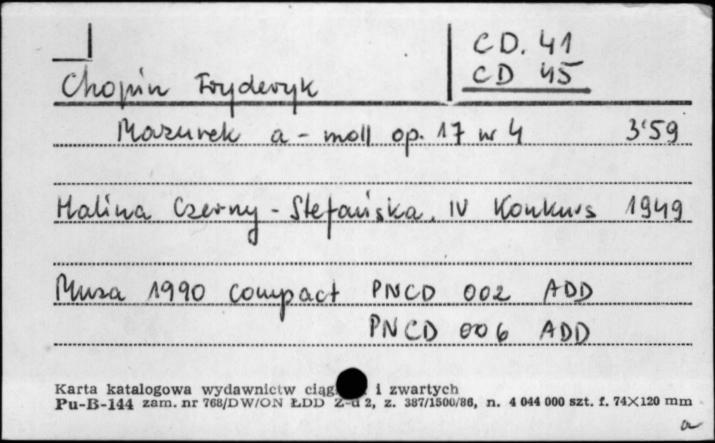 CD. 41
CD 45
Chopin Fryderyk
Mazurek a-moll op. 17 nr 4 3'59
Halina Czerny-Stefańska. IV Konkurs 1949
Muza 1990 compact PNCD 002 ADD
PNCD 006 ADD
Karta katalogowa wydawnictw i zwartych
Pu-B-144 zam. nr 768/DW/ON ŁDD Z-d 2, z. 387/1500/86, n. 4 044 000 szt. f. 74×120 mm
a